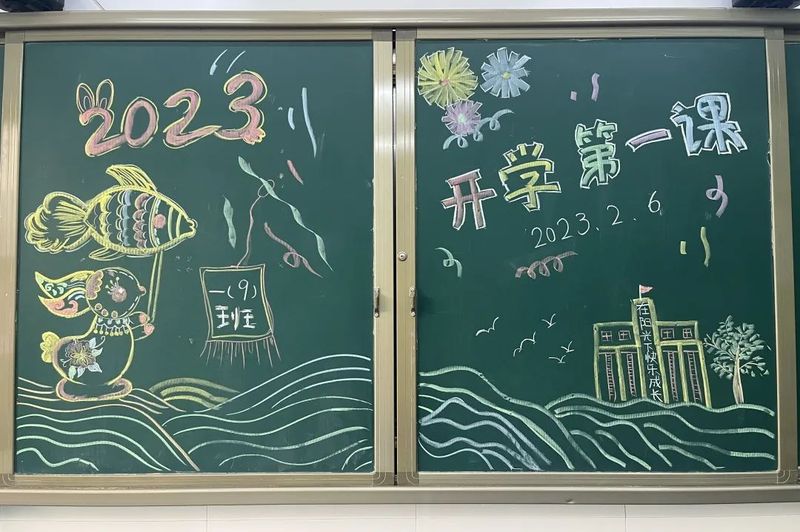 2023
一(9)
班
开学第一课
2023.2.6
在阳光下快乐成长